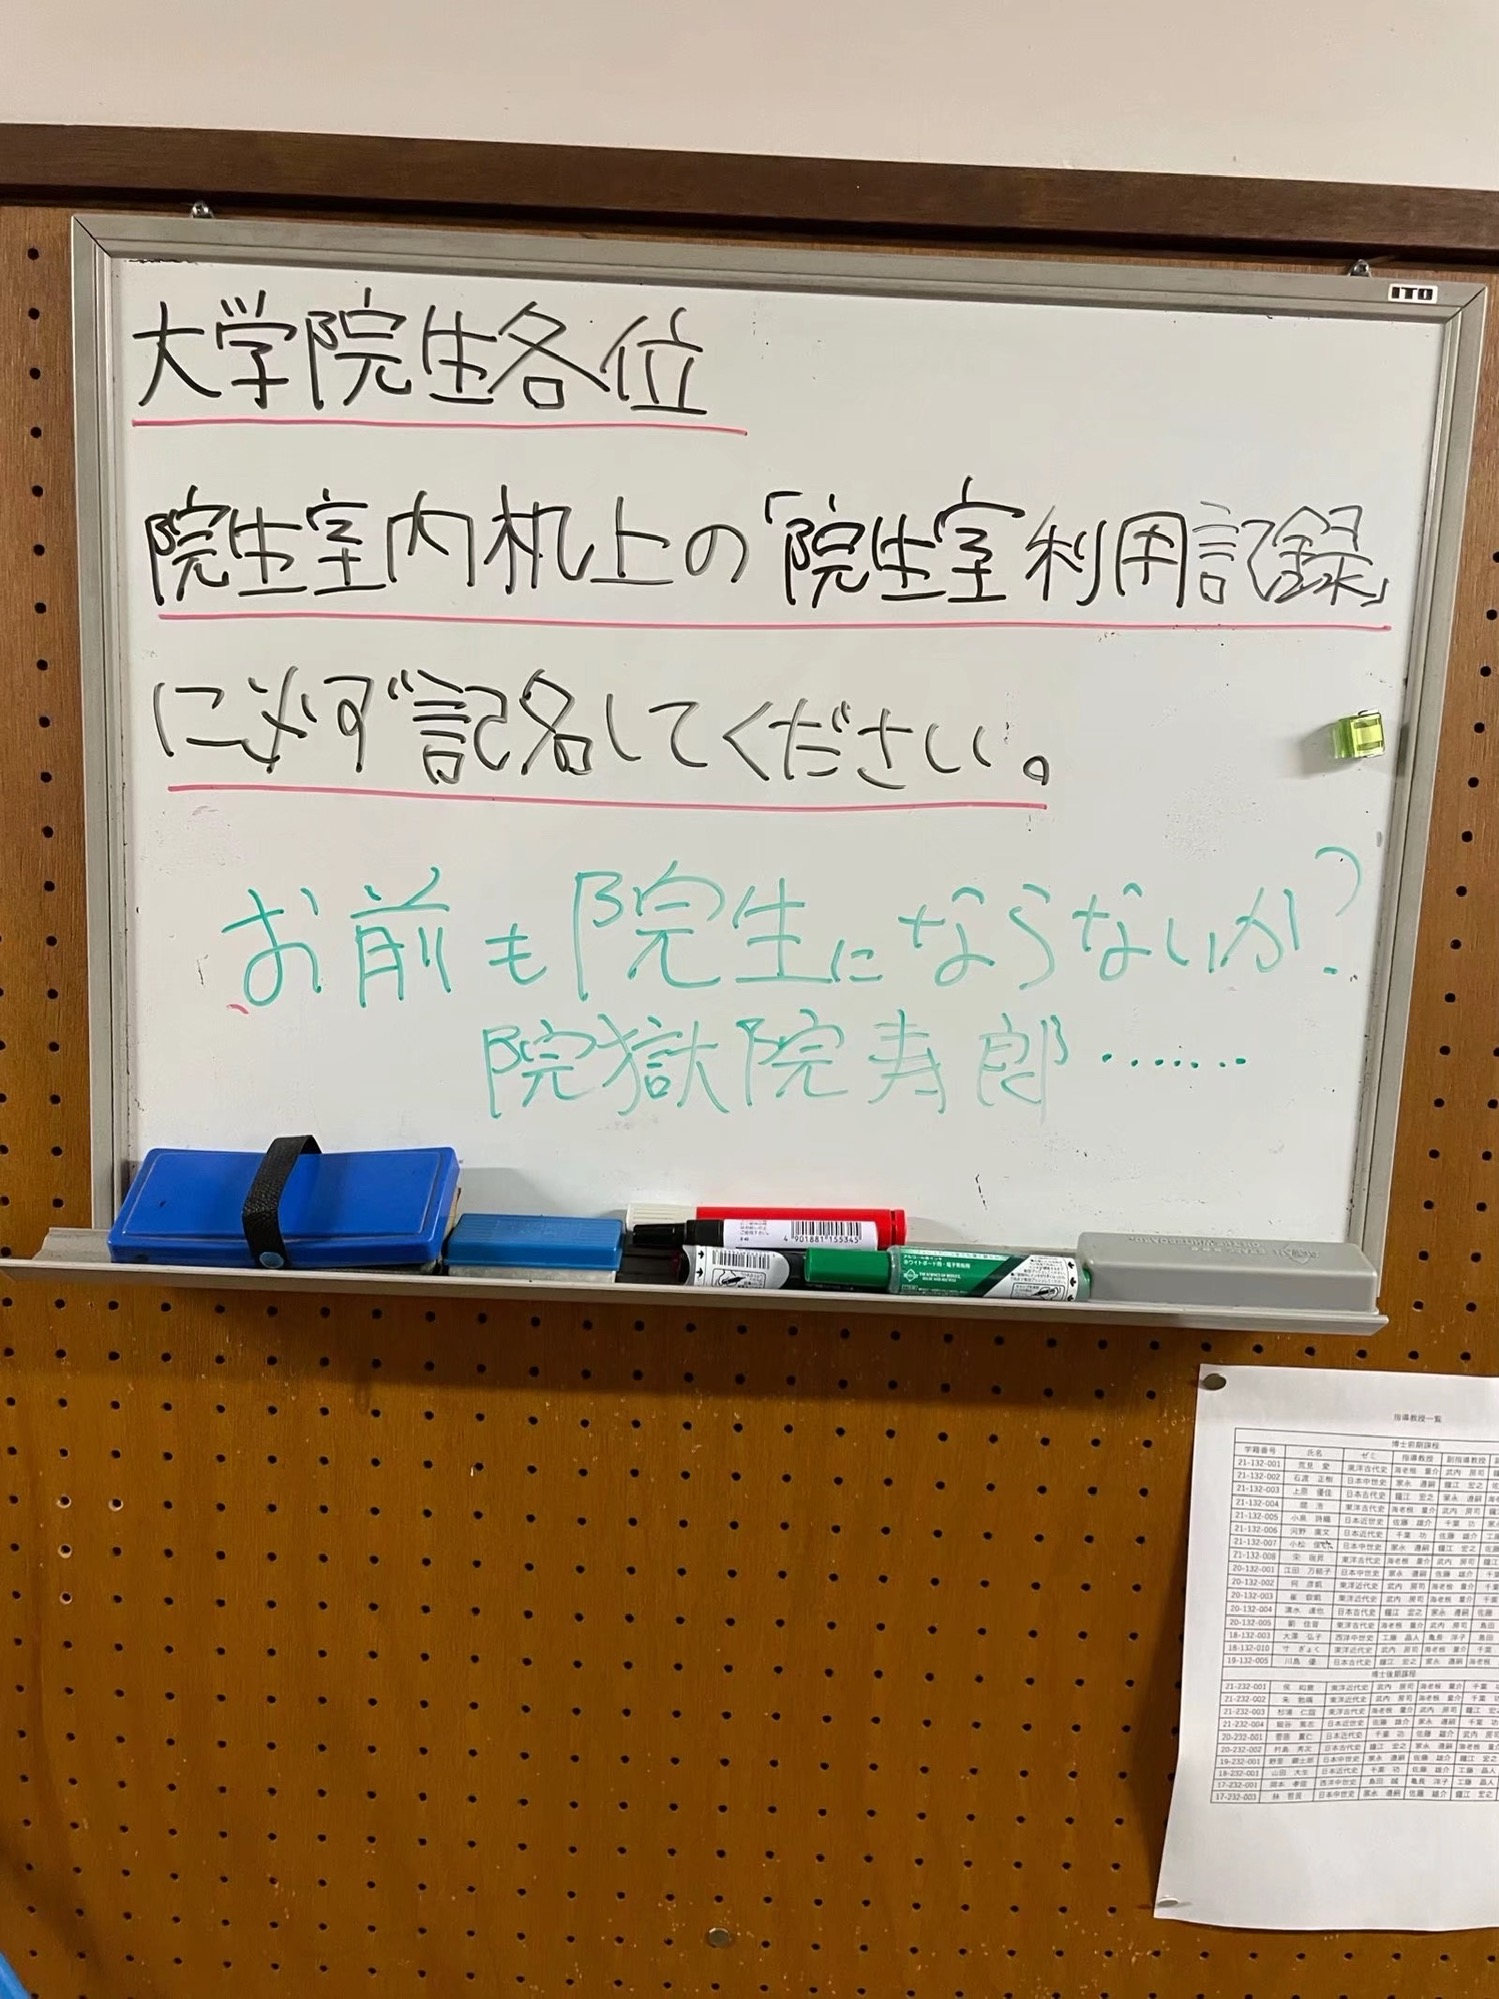 ITO
大学院生各位
院生室内机上の「院生室利用記録」
に必ず記名してください。
お前も院生にならないか?
院獄院寿郎‥‥‥
4 901881 155345
ホワイトボード用・電子黒板用
指導教授一覧
博士前期課程
学籍番号 氏名 ゼミ 指導教授 副指導教授
21-132-001 荒見 愛 東洋古代史 海老根 量介 武内 房司
21-132-002 石渡 正樹 日本中世史 家永 遵嗣 鐘江 宏之
21-132-003 上原 優佳 日本古代史 鐘江 宏之 家永 遵嗣
21-132-004 東洋古代史 海老根 量介 武内 房司
21-132-005 小島 詩織 日本近世史 佐藤 雄介 千葉 功
21-132-006 河野 廉文 日本近代史 千葉 功 佐藤 雄介
21-132-007 小松 日本中世史 家永 遵嗣 鐘江 宏之
21-132-008 東洋古代史 海老根 量介 武内 房司
20-132-001 江田 万結子 日本中世史 家永 遵嗣 佐藤 雄介
20-132-002 東洋近代史 武内 房司 海老根 量介
20-132-003 東洋近代史 武内 房司 海老根 量介
20-132-004 清水 達也 日本古代史 鐘江 宏之 家永 遵嗣
20-132-005 劉 佳音 東洋古代史 海老根 量介 武内 房司
18-132-003 大澤 弘子 西洋中世史 工藤 晶人 亀長 洋子
18-132-010 寸 ぎょく 東洋近代史 武内 房司 海老根 量介
19-132-005 川島 優 日本古代史 鐘江 宏之 家永 遵嗣
博士後期課程
21-232-001 東洋近代史 武内 房司 海老根 量介
21-232-002 東洋近代史 武内 房司 海老根 量介
21-232-003 杉浦 仁誼 東洋古代史 海老根 量介 武内 房司
21-232-004 日本近世史 佐藤 雄介 家永 遵嗣
20-232-001 菅原 日本近代史 千葉 功 佐藤 雄介
20-232-002 村島 秀次 日本古代史 鐘江 宏之 家永 遵嗣
19-232-001 日本中世史 家永 遵嗣 佐藤 雄介
18-232-001 山田 大生 日本近代史 千葉 功 佐藤 雄介
17-232-001 岡本 西洋中世史 島田 誠 亀長 洋子
17-232-003 林 哲民 日本中世史 家永 遵嗣 佐藤 雄介